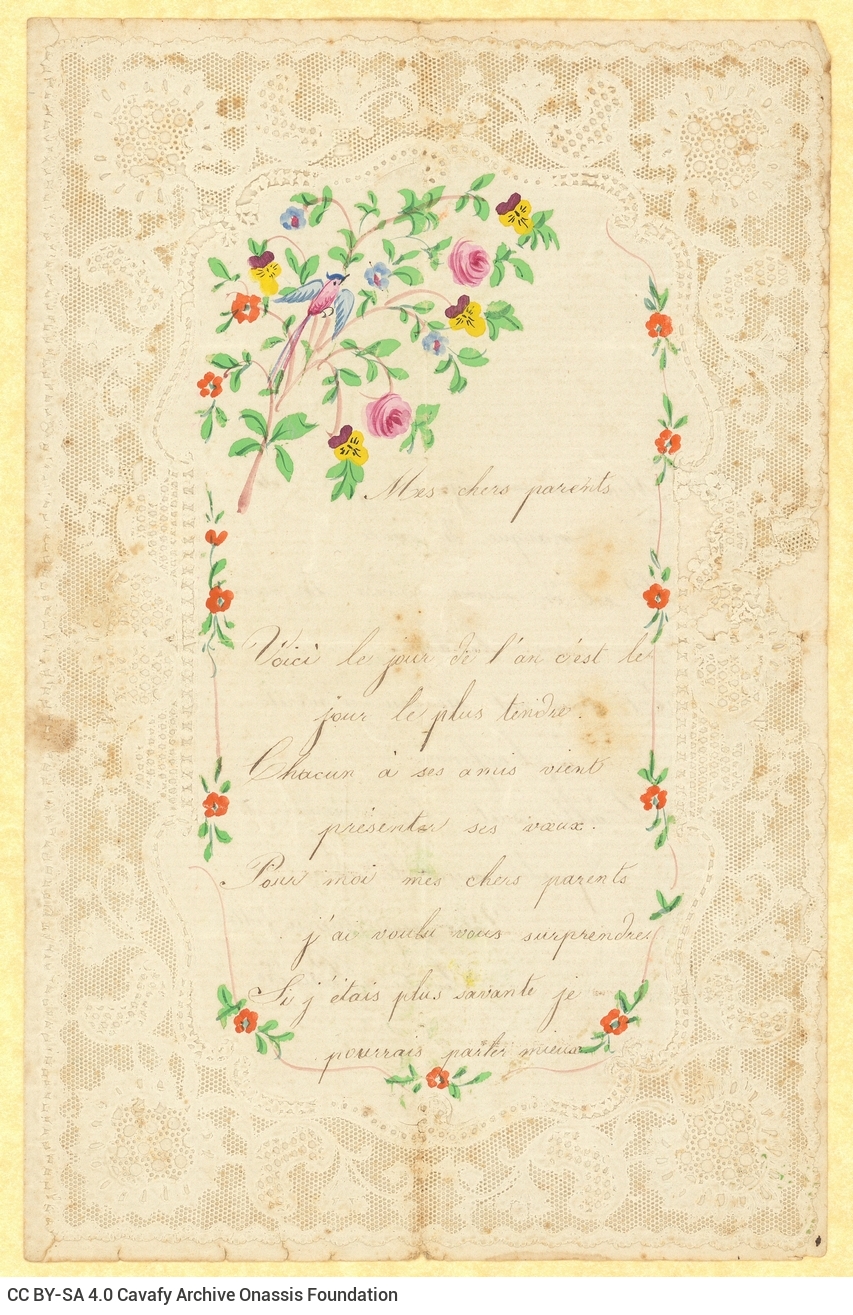 Mes chers parents
Voici le jour de l'an c'est le
jour le plus tendre.
Chacun à ses amis vient
présenter ses vœux.
Pour moi mes chers parents
j'ai voulu vous surprendre
Si j'étais plus savante je
pourrais parler mieux
CC BY-SA 4.0 Cavafy Archive Onassis Foundation